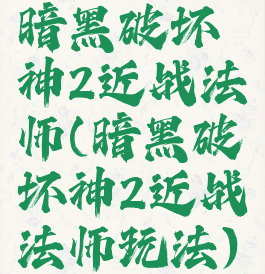 暗黑破坏
神2近战法
师(暗黑破
坏神2近战
法师玩法)